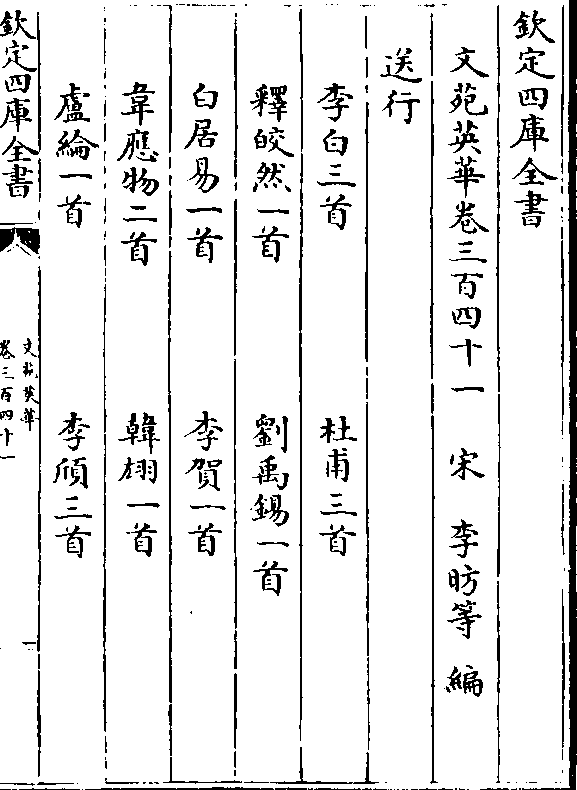 欽定四庫全書
文苑英華卷三百四十一　宋　李昉等　編
送行
李白三首　杜甫三首
釋皎然一首　劉禹錫一首
白居易一首　李賀一首
韋應物二首　韓翃一首
盧綸一首　李頎三首
欽定四庫全書
文苑英華
卷三百四十一
一